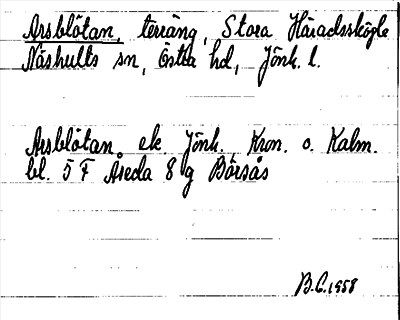 Arsblötan, terräng, Stora Häradsskögle
Näshults sn, Östra hd, Jönk. l.
Arsblötan ek. Jönk. Kron. o. Kalm.
bl. 5 F Åseda 8 g Börsås
B.C. 1958